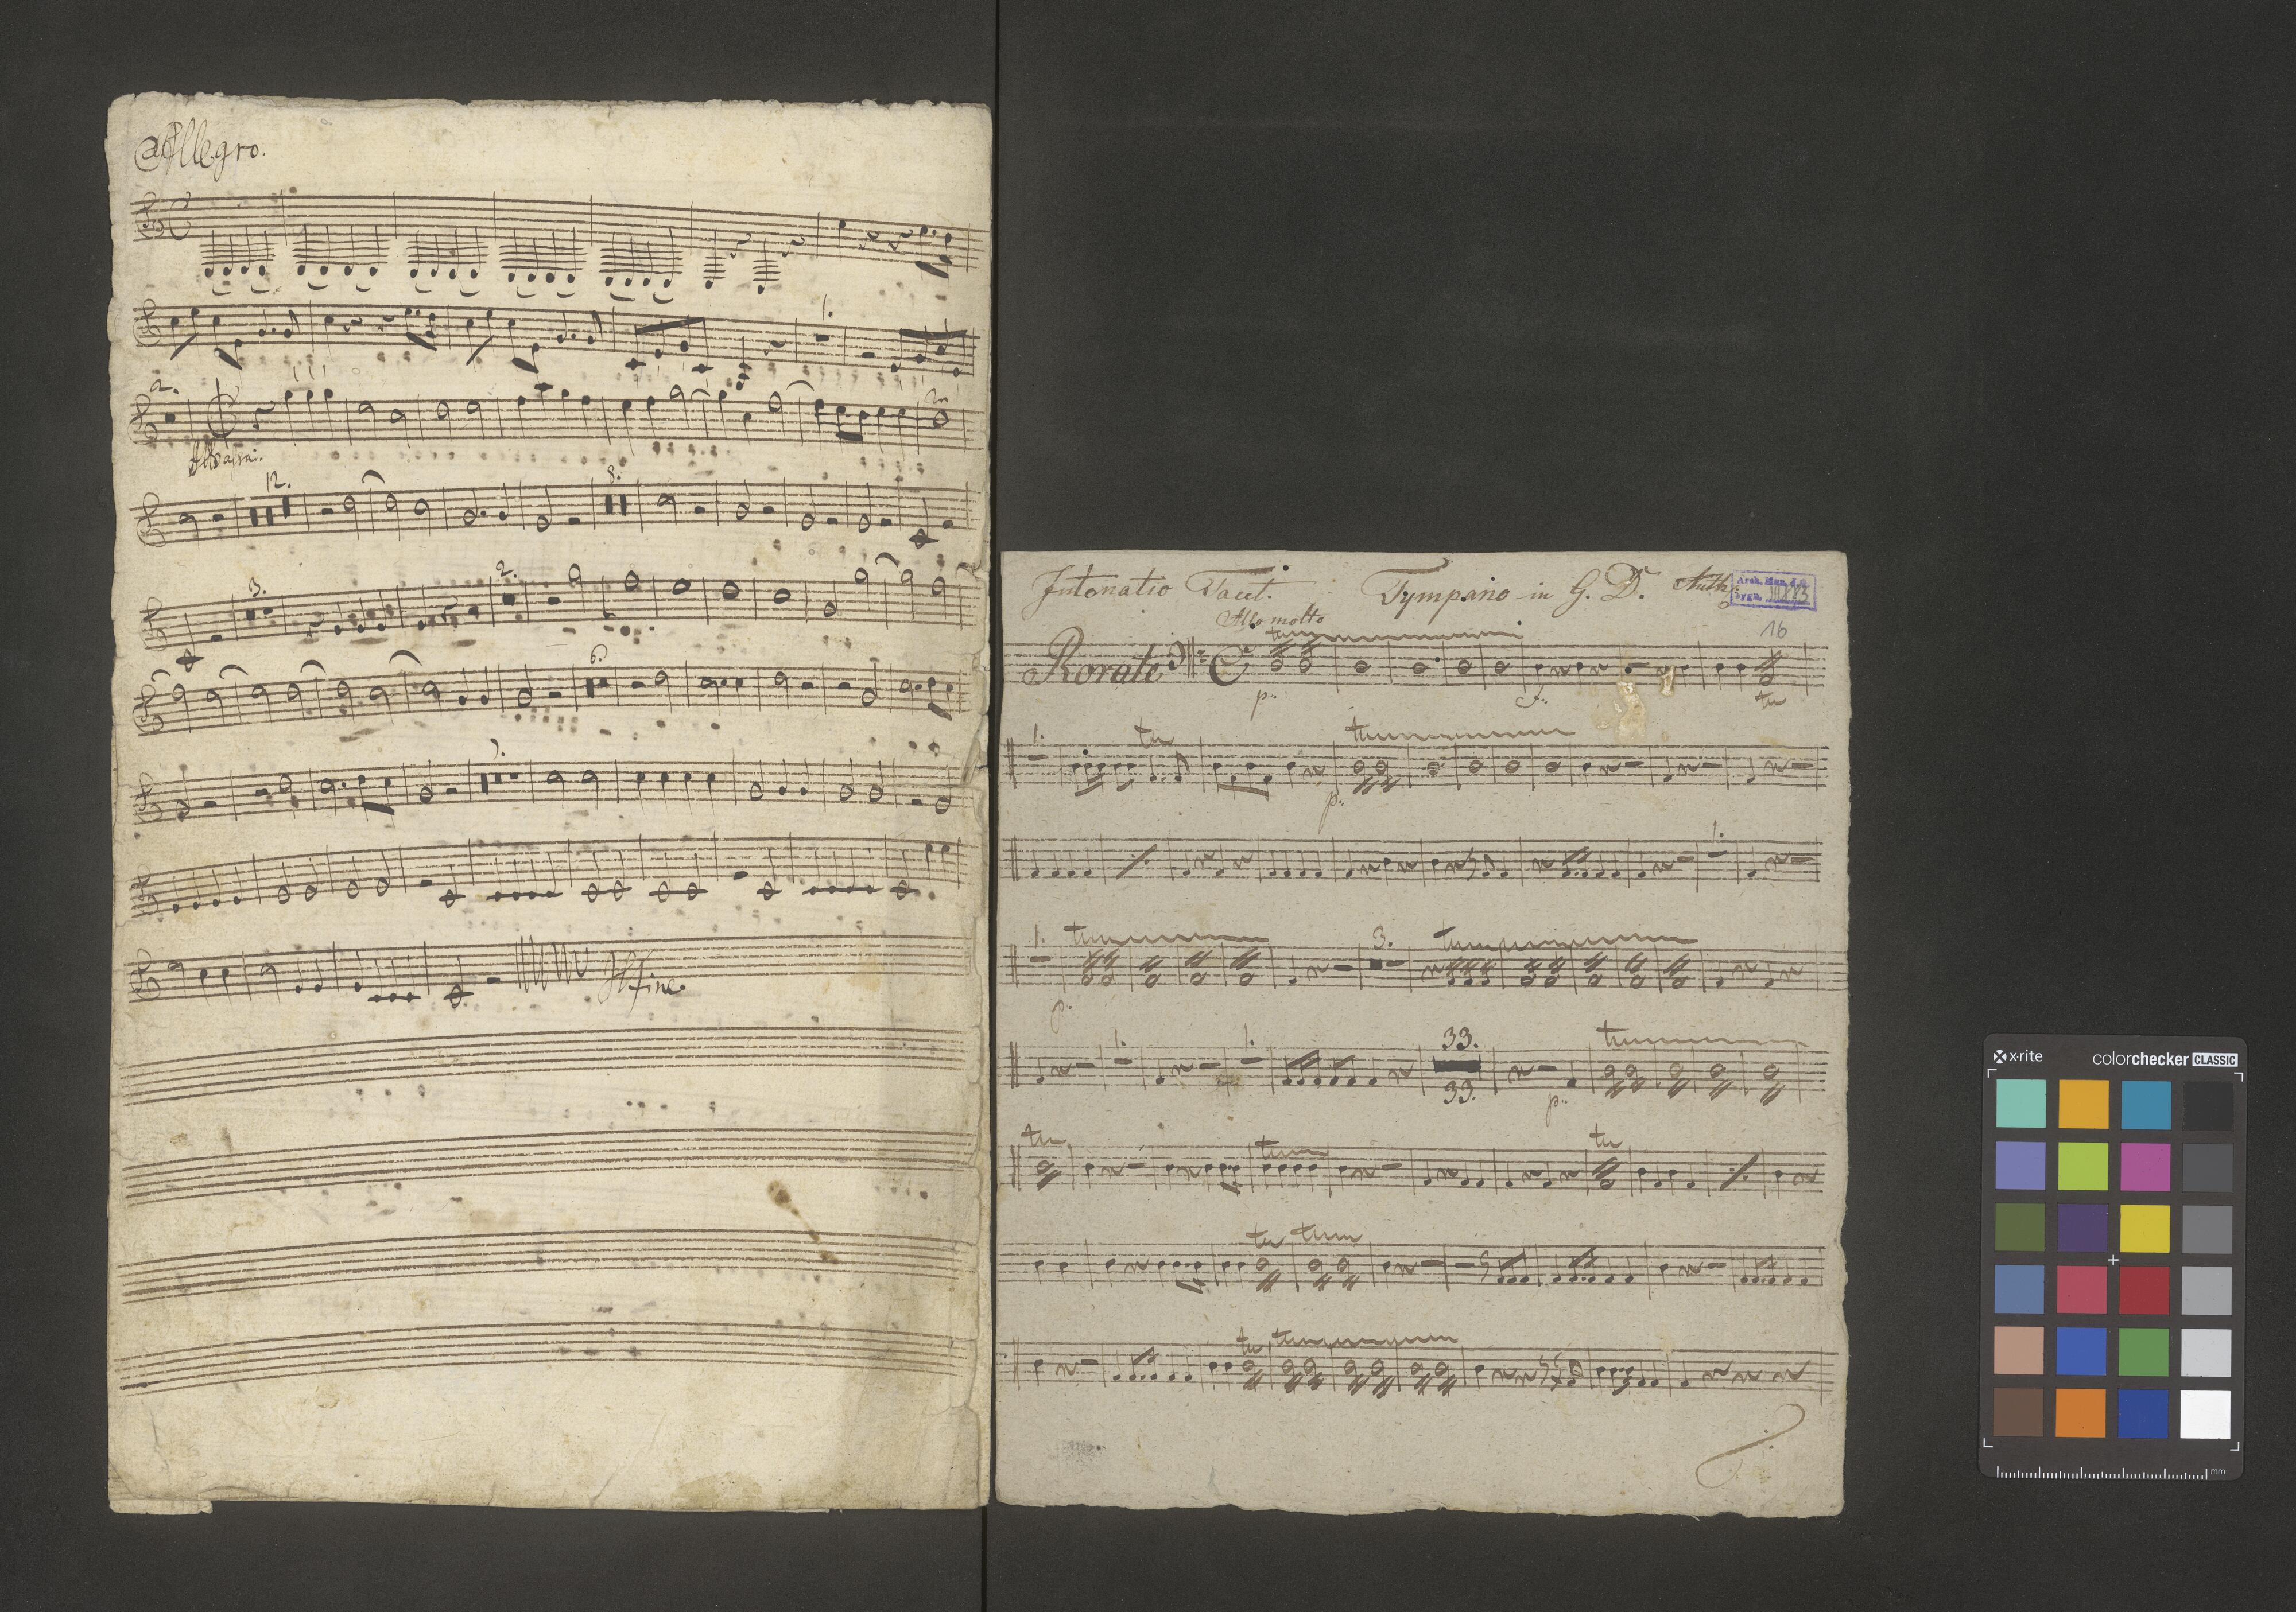 Allegro.
1.
2.
All° assai.
12.
8.
3.
2.
6.
Il fine.
Intonatio Tacet. Tympano in G. D. Auth
Arch. Mus. d.
16
All° molto
Rorate
tr
p:
f:
tr
1.
tr
tr
p:
1.
1.
tr
3.
tr
p.
1.
1.
33.
tr
33.
p:
tr
tr
tr
tr
tr
tr
tr
x·rite
colorchecker CLASSIC
mm